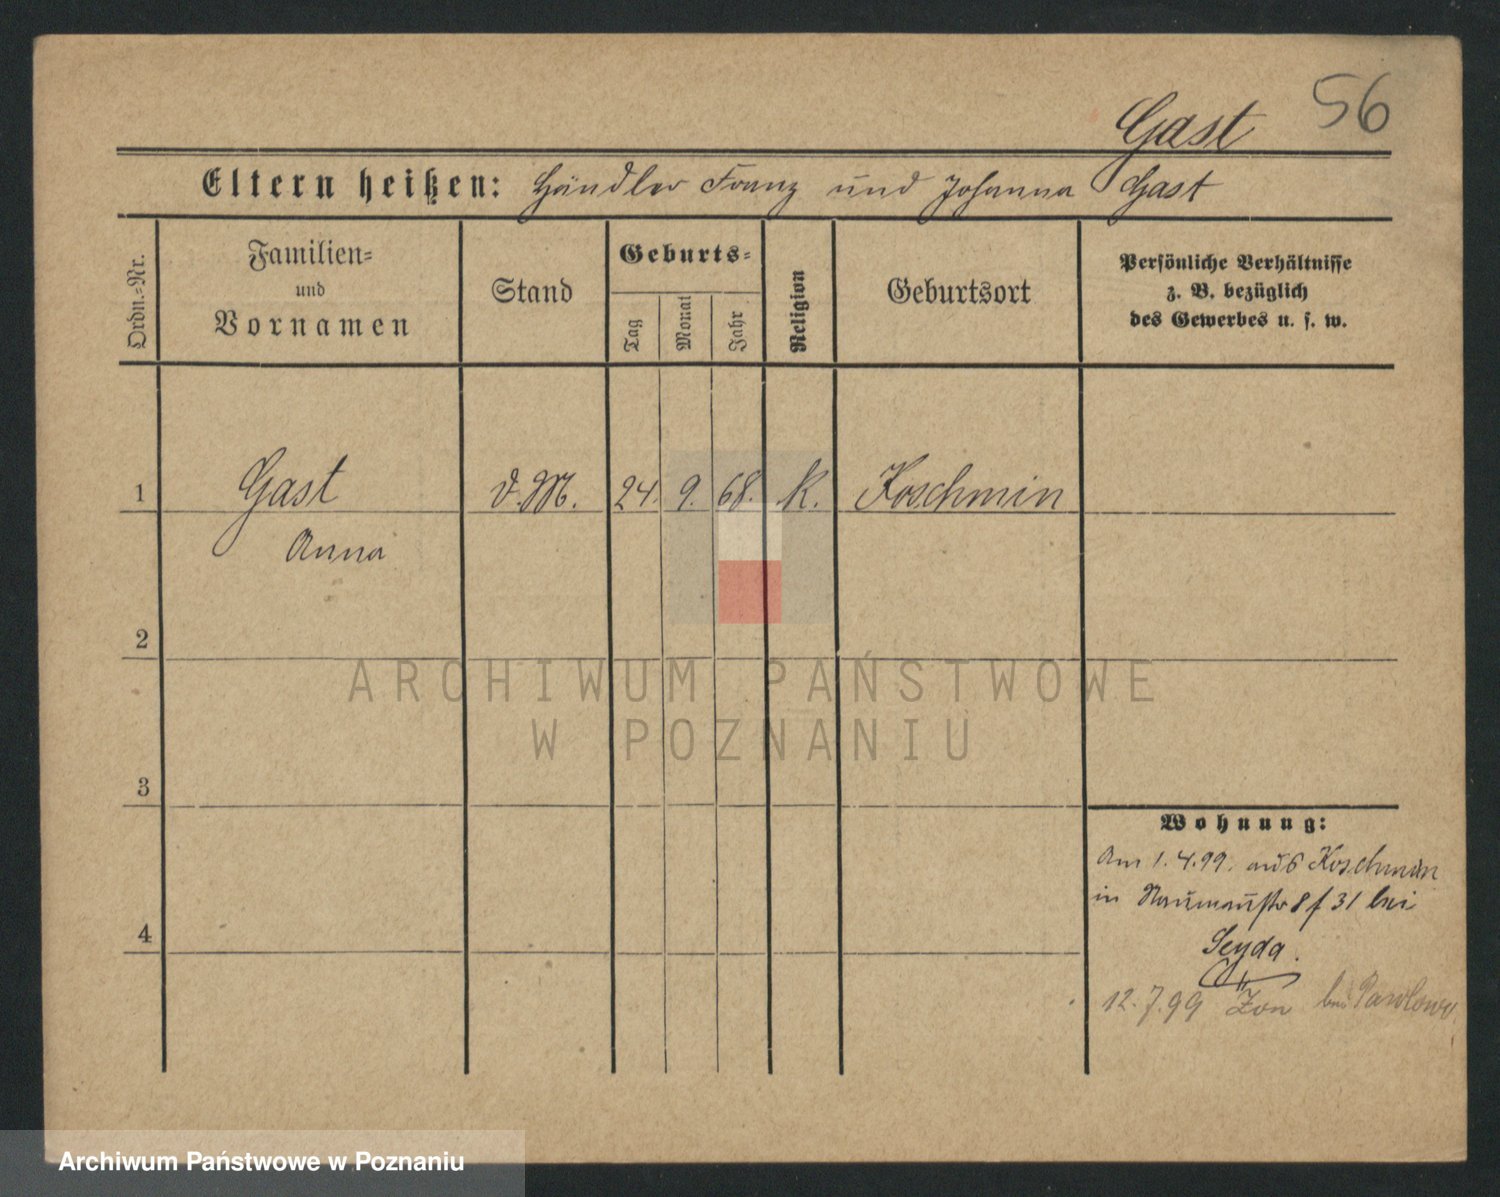 Gast 56
Eltern heißen: Händler Franz und Johanna Gast
Ordn.-Nr.
Familien-
und
Vornamen
Stand
Geburts-
Tag
Monat
Jahr
Religion
Geburtsort
Persönliche Verhältnisse
z. B. bezüglich
des Gewerbes u. s. w.
1 Gast d. M. 24. 9. 68. K. Koschmin
Anna
2
3
4
Wohnung:
Am 1.4.99. aus Koschmin
in Naumannstr 8 f 31 bei
Seyda.
12.7.99 Zon bei
ARCHIWUM PAŃSTWOWE
W POZNANIU
Archiwum Państwowe w Poznaniu